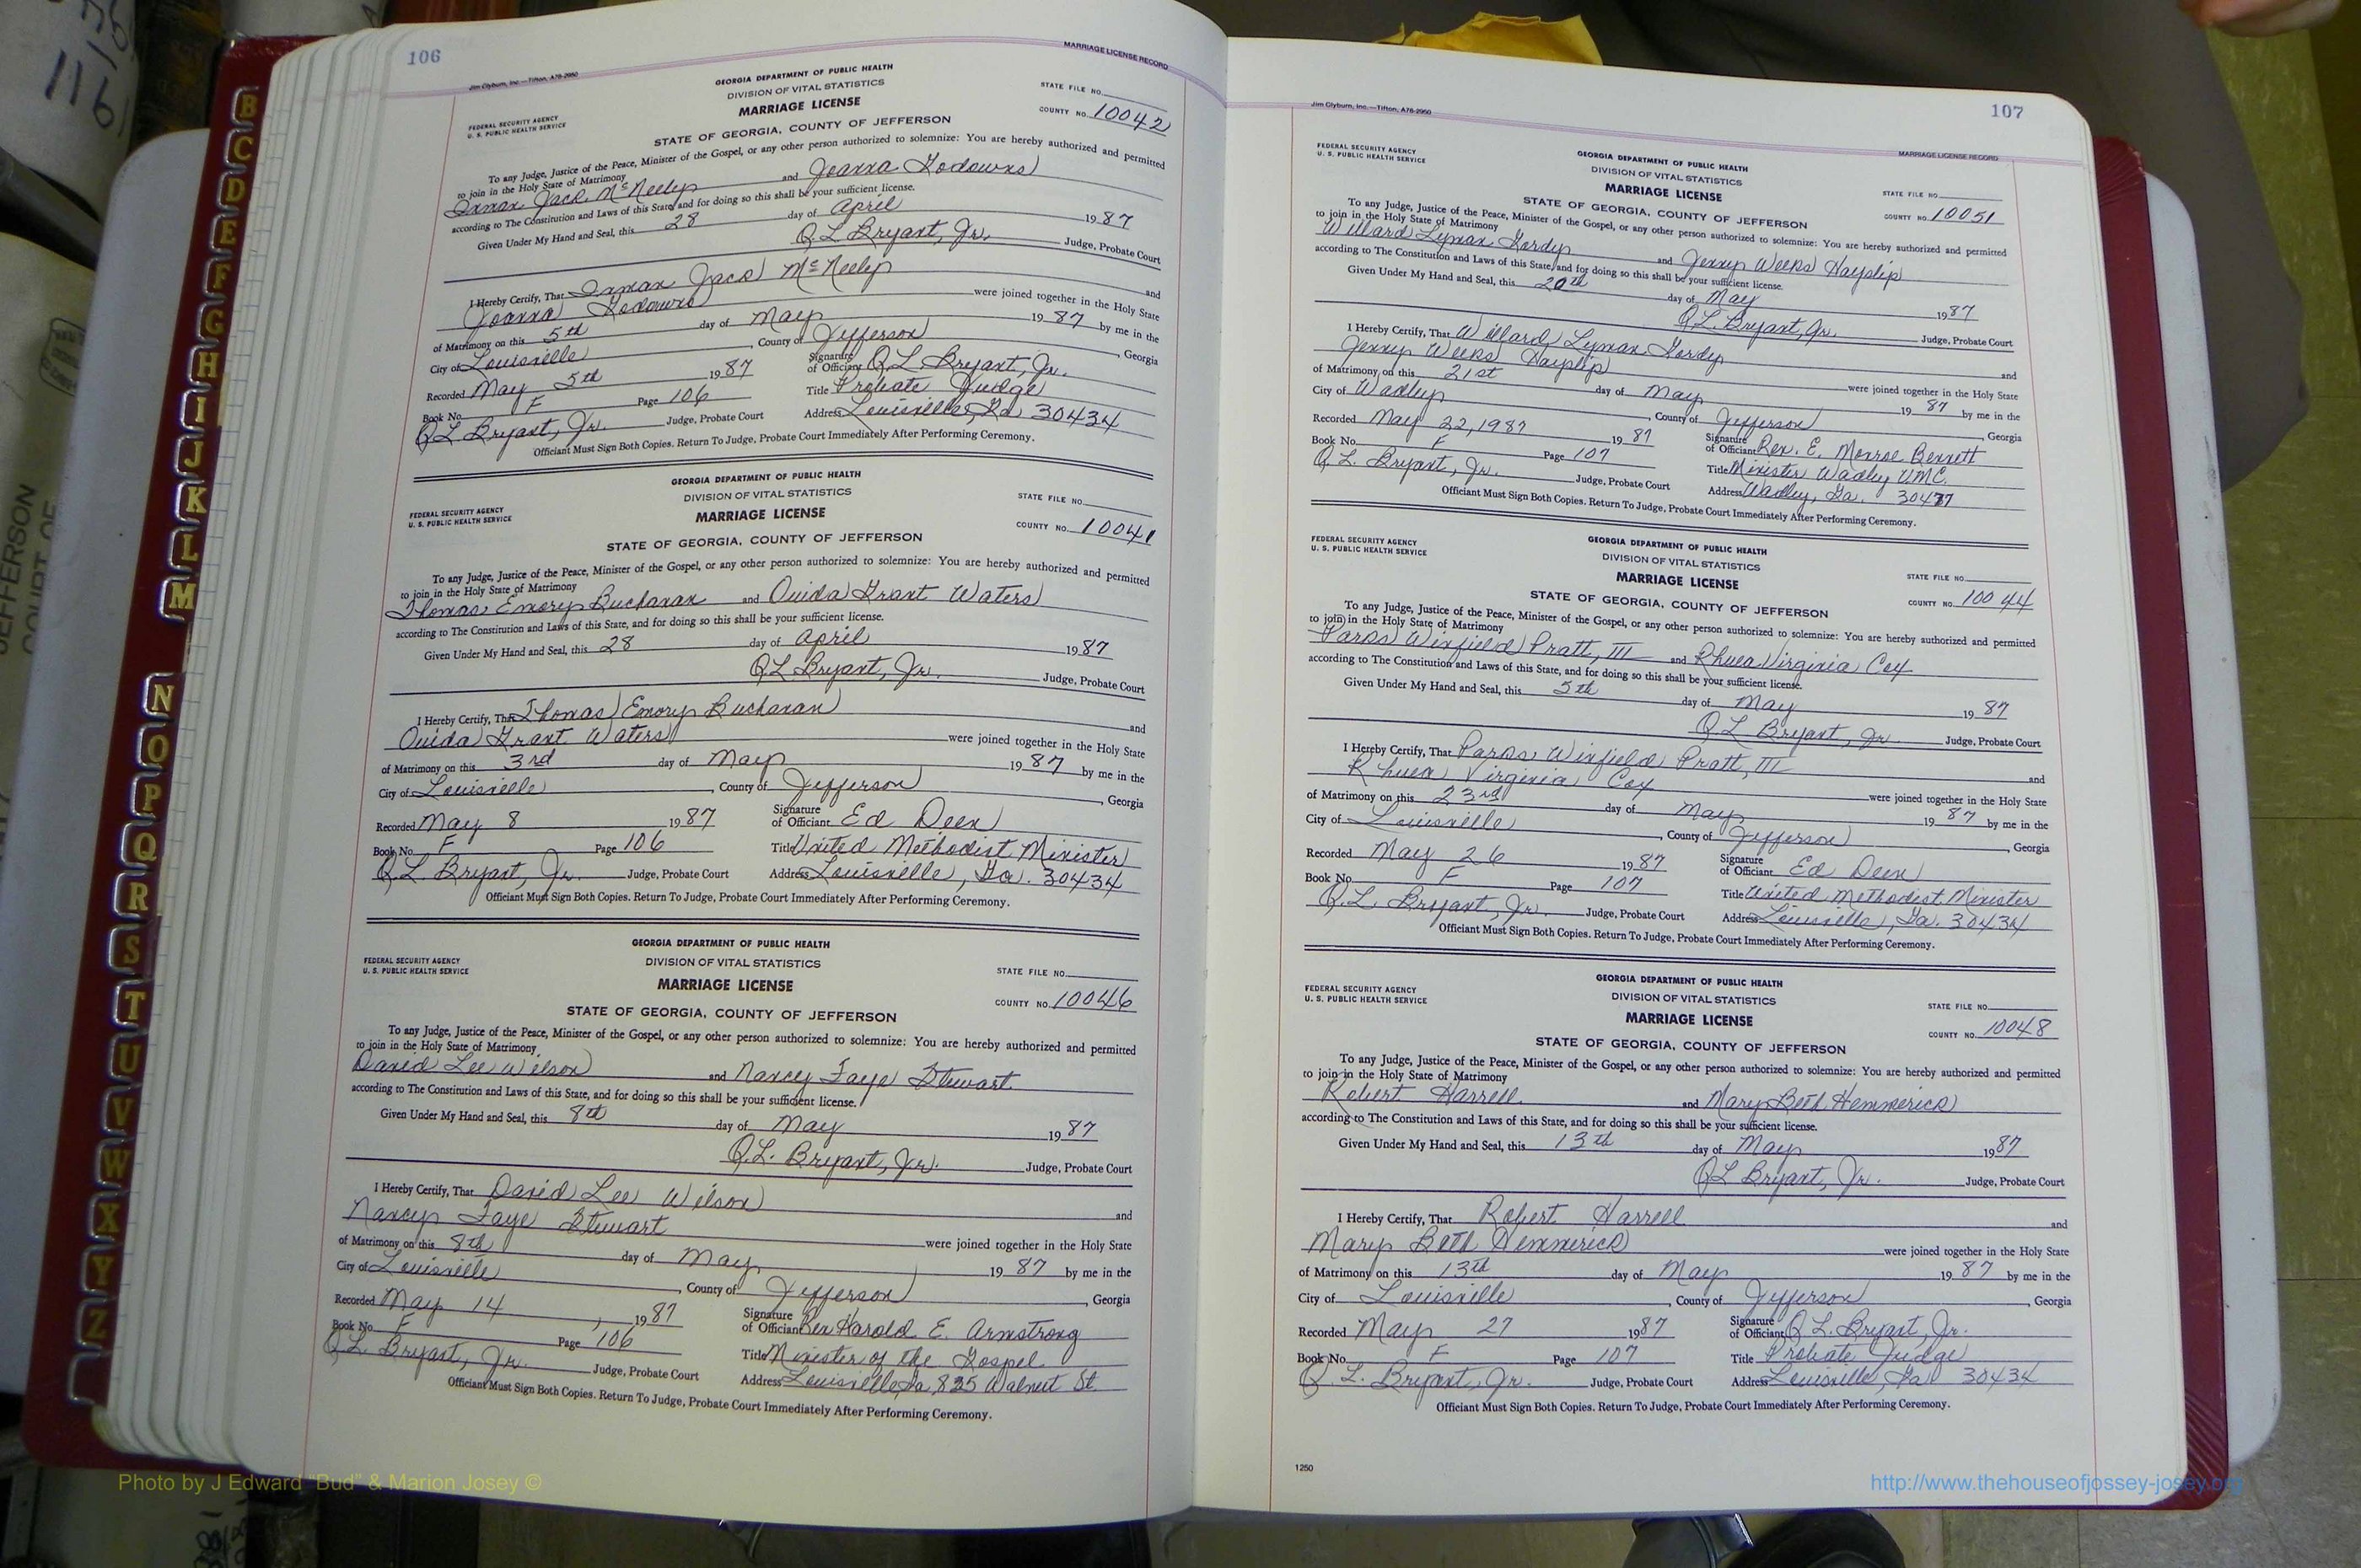 106
Jim Clyburn, Inc.—Tifton, A76-2950
MARRIAGE LICENSE RECORD
GEORGIA DEPARTMENT OF PUBLIC HEALTH
DIVISION OF VITAL STATISTICS
MARRIAGE LICENSE
STATE FILE NO.
COUNTY NO. 10042
FEDERAL SECURITY AGENCY
U. S. PUBLIC HEALTH SERVICE
STATE OF GEORGIA, COUNTY OF JEFFERSON
To any Judge, Justice of the Peace, Minister of the Gospel, or any other person authorized to solemnize: You are hereby authorized and permitted
to join in the Holy State of Matrimony
Inman Jack McNeely and Joanna Godowns
according to The Constitution and Laws of this State, and for doing so this shall be your sufficient license.
Given Under My Hand and Seal, this 28 day of April 1987
Q L Bryant, Jr. Judge, Probate Court
I Hereby Certify, That Inman Jack McNeely and
Joanna Godowns were joined together in the Holy State
of Matrimony on this 5th day of May 1987 by me in the
City of Louisville, County of Jefferson, Georgia
Recorded May 5th 1987 Signature of Officiant Q L Bryant, Jr.
Book No. F Page 106 Title Probate Judge
Q L Bryant, Jr. Judge, Probate Court Address Louisville, Ga. 30434
Officiant Must Sign Both Copies. Return To Judge, Probate Court Immediately After Performing Ceremony.
GEORGIA DEPARTMENT OF PUBLIC HEALTH
DIVISION OF VITAL STATISTICS
MARRIAGE LICENSE
STATE FILE NO.
COUNTY NO. 10041
FEDERAL SECURITY AGENCY
U. S. PUBLIC HEALTH SERVICE
STATE OF GEORGIA, COUNTY OF JEFFERSON
To any Judge, Justice of the Peace, Minister of the Gospel, or any other person authorized to solemnize: You are hereby authorized and permitted
to join in the Holy State of Matrimony
Thomas Emory Buchanan and Ouida Grant Waters
according to The Constitution and Laws of this State, and for doing so this shall be your sufficient license.
Given Under My Hand and Seal, this 28 day of April 1987
Q L Bryant, Jr. Judge, Probate Court
I Hereby Certify, That Thomas Emory Buchanan and
Ouida Grant Waters were joined together in the Holy State
of Matrimony on this 3rd day of May 1987 by me in the
City of Louisville, County of Jefferson, Georgia
Recorded May 8 1987 Signature of Officiant Ed Deen
Book No. F Page 106 Title United Methodist Minister
Q.L. Bryant, Jr. Judge, Probate Court Address Louisville, Ga. 30434
Officiant Must Sign Both Copies. Return To Judge, Probate Court Immediately After Performing Ceremony.
GEORGIA DEPARTMENT OF PUBLIC HEALTH
DIVISION OF VITAL STATISTICS
MARRIAGE LICENSE
STATE FILE NO.
COUNTY NO. 10046
FEDERAL SECURITY AGENCY
U. S. PUBLIC HEALTH SERVICE
STATE OF GEORGIA, COUNTY OF JEFFERSON
To any Judge, Justice of the Peace, Minister of the Gospel, or any other person authorized to solemnize: You are hereby authorized and permitted
to join in the Holy State of Matrimony
David Lee Wilson and Nancy Faye Stewart
according to The Constitution and Laws of this State, and for doing so this shall be your sufficient license.
Given Under My Hand and Seal, this 8th day of May 1987
Q.L. Bryant, Jr. Judge, Probate Court
I Hereby Certify, That David Lee Wilson and
Nancy Faye Stewart were joined together in the Holy State
of Matrimony on this 8th day of May 1987 by me in the
City of Louisville, County of Jefferson, Georgia
Recorded May 14, 1987 Signature of Officiant Rev Harold E. Armstrong
Book No. F Page 106 Title Minister of the Gospel
Q L Bryant, Jr. Judge, Probate Court Address Louisville, Ga 825 Walnut St.
Officiant Must Sign Both Copies. Return To Judge, Probate Court Immediately After Performing Ceremony.
107
Jim Clyburn, Inc.—Tifton, A76-2950
MARRIAGE LICENSE RECORD
FEDERAL SECURITY AGENCY
U. S. PUBLIC HEALTH SERVICE
GEORGIA DEPARTMENT OF PUBLIC HEALTH
DIVISION OF VITAL STATISTICS
MARRIAGE LICENSE
STATE FILE NO.
COUNTY NO. 10051
STATE OF GEORGIA, COUNTY OF JEFFERSON
To any Judge, Justice of the Peace, Minister of the Gospel, or any other person authorized to solemnize: You are hereby authorized and permitted
to join in the Holy State of Matrimony
Willard Lyman Gordy and Jenny Weeks Hayslip
according to The Constitution and Laws of this State, and for doing so this shall be your sufficient license.
Given Under My Hand and Seal, this 20th day of May 1987
Q.L. Bryant, Jr. Judge, Probate Court
I Hereby Certify, That Willard Lyman Gordy and
Jenny Weeks Hayslip were joined together in the Holy State
of Matrimony on this 21st day of May 1987 by me in the
City of Wadley, County of Jefferson, Georgia
Recorded May 22, 1987 1987 Signature of Officiant Rev. E. Monroe Bennett
Book No. F Page 107 Title Minister Wadley UMC.
Q L. Bryant, Jr. Judge, Probate Court Address Wadley, Ga. 30477
Officiant Must Sign Both Copies. Return To Judge, Probate Court Immediately After Performing Ceremony.
FEDERAL SECURITY AGENCY
U. S. PUBLIC HEALTH SERVICE
GEORGIA DEPARTMENT OF PUBLIC HEALTH
DIVISION OF VITAL STATISTICS
MARRIAGE LICENSE
STATE FILE NO.
COUNTY NO. 10044
STATE OF GEORGIA, COUNTY OF JEFFERSON
To any Judge, Justice of the Peace, Minister of the Gospel, or any other person authorized to solemnize: You are hereby authorized and permitted
to join in the Holy State of Matrimony
Winfield Pratt, III and Rhuea Virginia Cox
according to The Constitution and Laws of this State, and for doing so this shall be your sufficient license.
Given Under My Hand and Seal, this 5th day of May 1987
Q L Bryant, Jr. Judge, Probate Court
I Hereby Certify, That Winfield Pratt, III and
Rhuea Virginia Cox were joined together in the Holy State
of Matrimony on this 23rd day of May 1987 by me in the
City of Louisville, County of Jefferson, Georgia
Recorded May 26 1987 Signature of Officiant Ed Deen
Book No. F Page 107 Title United Methodist Minister
Q.L. Bryant, Jr. Judge, Probate Court Address Louisville, Ga. 30434
Officiant Must Sign Both Copies. Return To Judge, Probate Court Immediately After Performing Ceremony.
FEDERAL SECURITY AGENCY
U. S. PUBLIC HEALTH SERVICE
GEORGIA DEPARTMENT OF PUBLIC HEALTH
DIVISION OF VITAL STATISTICS
MARRIAGE LICENSE
STATE FILE NO.
COUNTY NO. 10048
STATE OF GEORGIA, COUNTY OF JEFFERSON
To any Judge, Justice of the Peace, Minister of the Gospel, or any other person authorized to solemnize: You are hereby authorized and permitted
to join in the Holy State of Matrimony
Robert Harrell and Mary Beth Hemmerick
according to The Constitution and Laws of this State, and for doing so this shall be your sufficient license.
Given Under My Hand and Seal, this 13th day of May 1987
Q L Bryant, Jr. Judge, Probate Court
I Hereby Certify, That Robert Harrell and
Mary Beth Hemmerick were joined together in the Holy State
of Matrimony on this 13th day of May 1987 by me in the
City of Louisville, County of Jefferson, Georgia
Recorded May 27 1987 Signature of Officiant Q L. Bryant, Jr.
Book No. F Page 107 Title Probate Judge
Q. L. Bryant, Jr. Judge, Probate Court Address Louisville, Ga 30434
Officiant Must Sign Both Copies. Return To Judge, Probate Court Immediately After Performing Ceremony.
1250
B
C
D
E
F
G
H
I
J
K
L
M
N
O
P
Q
R
S
T
U
V
W
X
Y
Z
JEFFERSON
COURT OF
Photo by J Edward "Bud" & Marion Josey ©
http://www.thehouseofjossey-josey.org